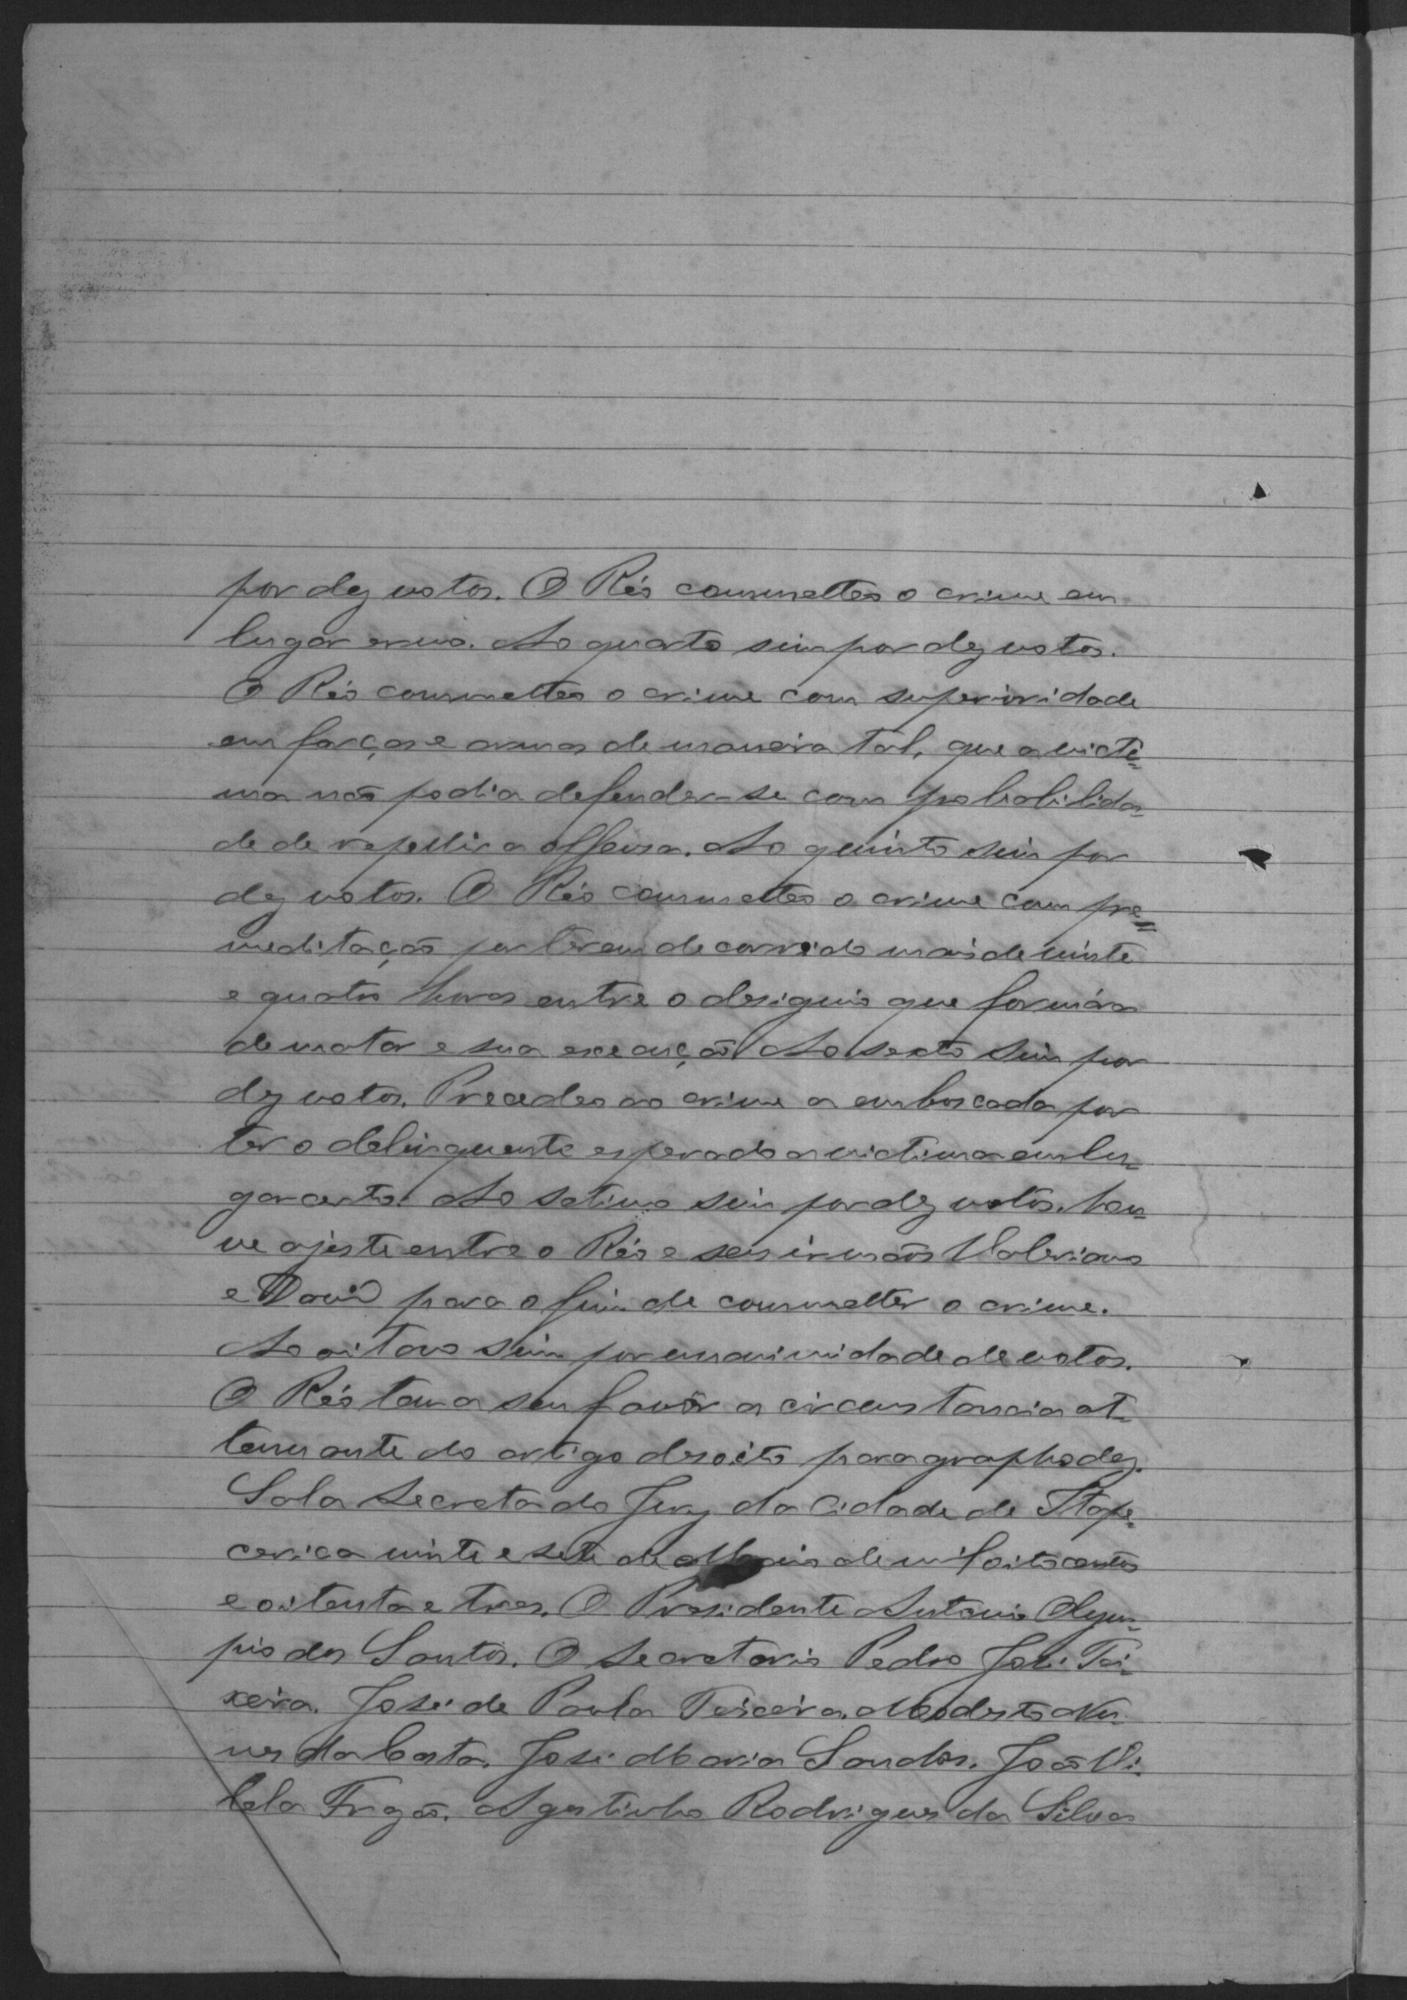 por dez votos. O Réo commetteo o crime em
lugar ermo. Ao quarto sim por dez votos.
O Réo commetteo o crime com superioridade
em forças e armas de maneira tal, que a victi=
ma não podia defender-se com probabilida-
de de repellir a offensa. Ao quinto sim por
dez votos. O Réo commetteo o crime com pre=
meditação por terem decorrido mais de vinte
e quatro horas entre o designio que formára
de matar e sua execução. Ao sexto sim por
dez votos. Precedeo ao crime a emboscada por
ter o delinquente esperado a victima em lu-
gar certo. Ao setimo sim por dez votos. Hou-
ve ajuste entre o Réo e seus irmãos Valeriano
e David para o fim de commetter o crime.
Ao oitavo sim por unanimidade de votos.
O Réo tem a seu favôr a circunstancia at-
tenuante do artigo desoito paragrapho dez.
Sala Secreta do Jury da Cidade de Itape-
cerica vinte e sete de Maio de mil oitocentos
e oitenta e tres. O Presidente Antonio Olym-
pio dos Santos. O Secretario Pedro José Tei-
xeira. José de Paula Teixeira. Modesto Nu-
nes da Costa. José Maria Sandos. João Vi-
lela Frazão. Agostinho Rodrigues da Silva